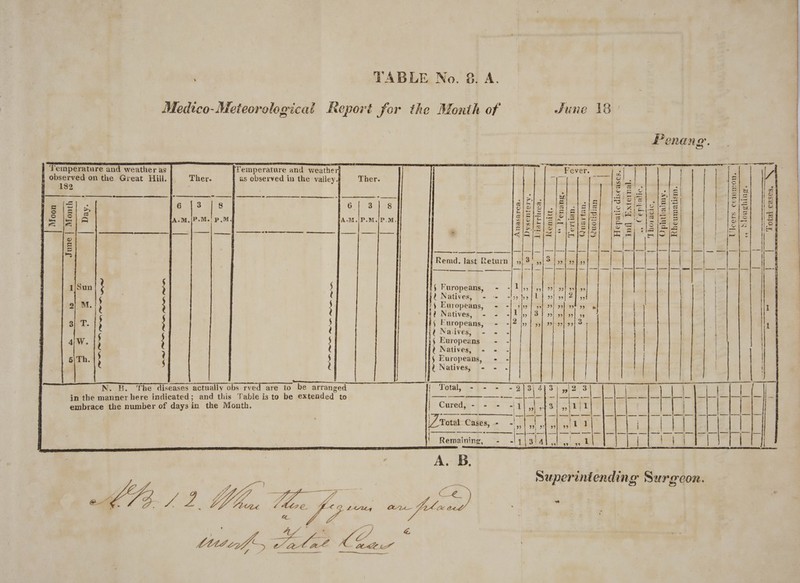 TABLE No. 8. A.
Medico-Meteorological Report for the Month of June 18
Penang.
Temperature and weather as observed on the Great Hill. 182
Ther.
Temperature and weather as observed in the valley.
Ther.
Moon
Month
Day.
6 A.M.
3 P.M.
8 P.M.
6 A.M.
3 P.M.
8 P.M.
Fever.
Anasarca.
Dysentery.
Diarrhœa.
Remitt.
" Penang.
Tertian.
Quartan.
Quotidian
Hepatic diseases.
Infl External.
,, Cephalic.
Thoracic.
Ophthalmy.
Rheumatism.
Ulcers common.
,, Sloughing.
Total cases.
June
Remd. last Return ,, 3 ,, 3 ,, ,, ,,
1 Sun
Europeans, - - 1 ,, ,, ,, ,, ,, ,,
Natives, - - - ,, ,, 1 ,, ,, 2 ,,
2 M.
Europeans, - - ,, ,, ,, ,, ,, ,, 1
Natives, - - - 1 ,, 3 ,, ,, ,, ,,
3 T.
Europeans, - - 2 ,, ,, ,, ,, ,, 3 1
Natives, - - -
4 W.
Europeans - -
Natives, - - -
5 Th.
Europeans, - -
Natives, - - -
Total, - - - - 2 3 4 3 ,, 2 3
Cured, - - - - 1 ,, ,, 3 ,, 1 1
Total Cases, - - ,, ,, ,, ,, ,, 1 1
Remaining, - - 1 3 4 ,, ,, ,, 1
N. B. The diseases actually obs rved are to be arranged
in the manner here indicated; and this Table is to be extended to
embrace the number of days in the Month.
A. B.
Superintending Surgeon.
N.B. 1. 2. Where these figures are placed
insert, "Fatal Cases"